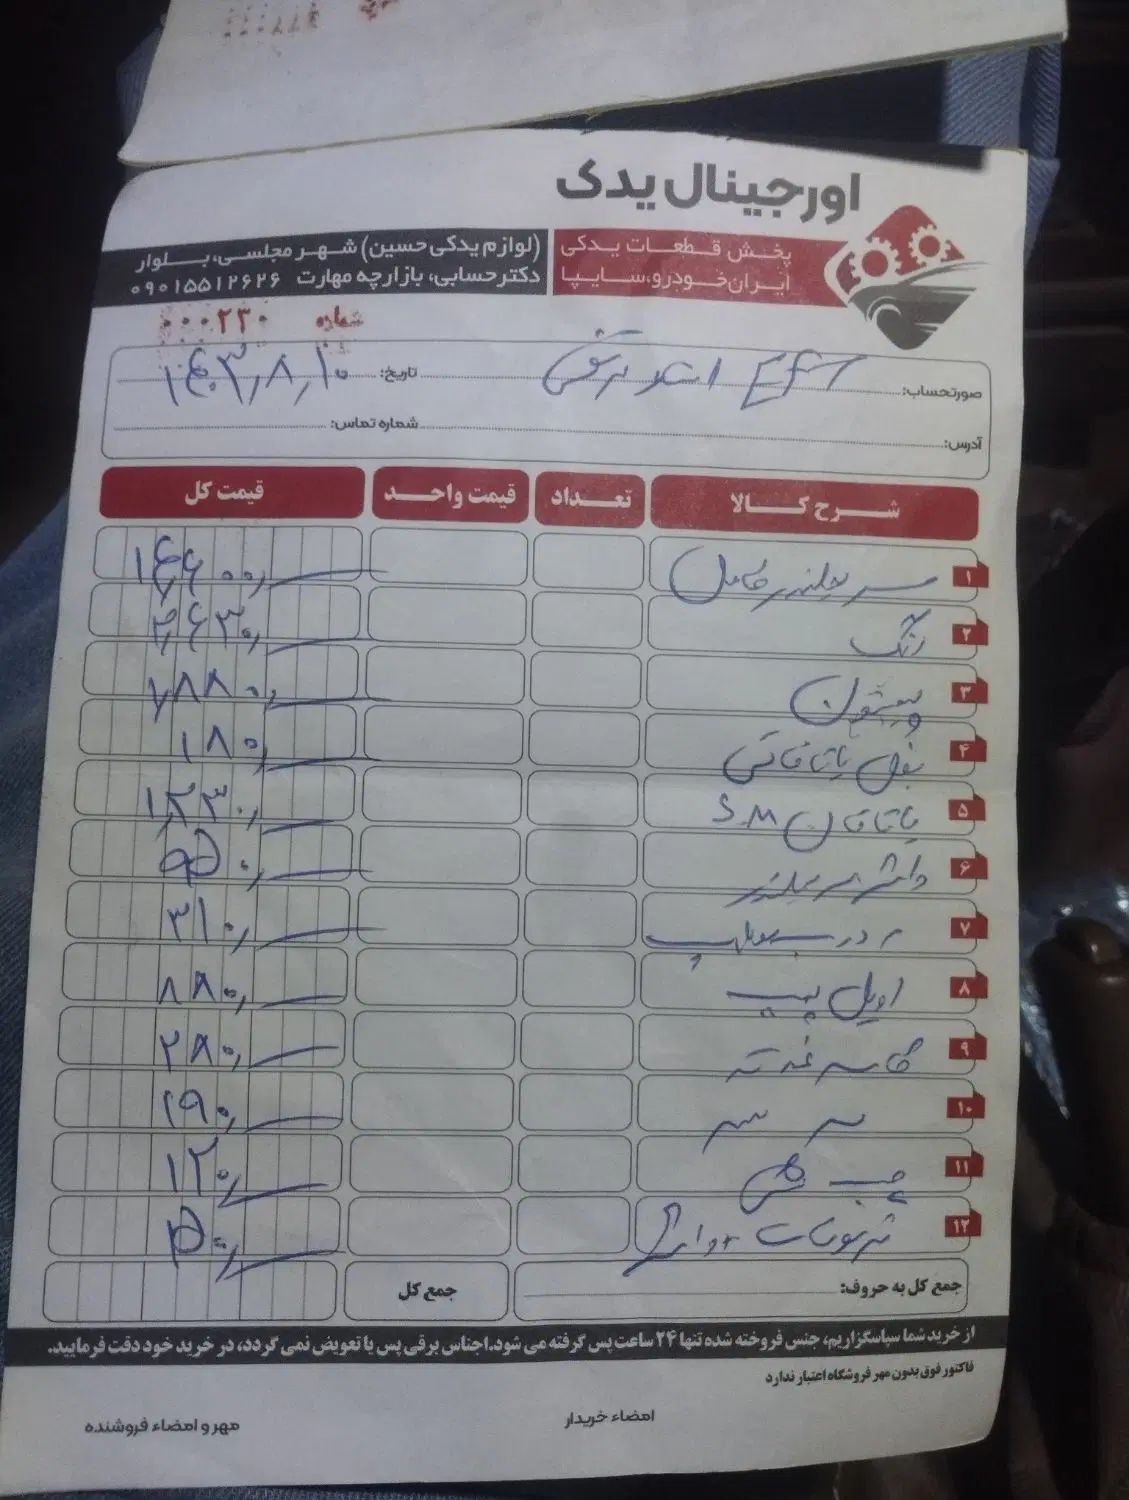 اورجینال یدک
پخش قطعات یدکی
ایران خودرو، سایپا
(لوازم یدکی حسین) شهر مجلسی، بلوار
دکتر حسابی، بازارچه مهارت ۰۹۰۱۵۵۱۲۶۲۶
شماره ۰۰۰۲۳۰
صورتحساب: EF7 استاد تاریخ: ۱۴۰۳,۸,۱۰
آدرس: شماره تماس:
شرح کالا تعداد قیمت واحد قیمت کل
۱ سرسیلندر کامل
۲ رنگ
۳ پیستون ۷۸۸۰,
۴ بغل یاتاقانی ۱۸۰,
۵ یاتاقان S.M
۶ واشر سرسیلندر
۷ ۳۱۰,
۸ اویل پمپ ۸۸۰,
۹ کاسه نمد ته ۲۸۰,
۱۰ سر ۱۹۰,
۱۱ چسب ۱۲۰,
۱۲
جمع کل به حروف: جمع کل
از خرید شما سپاسگزاریم، جنس فروخته شده تنها ۲۴ ساعت پس گرفته می شود. اجناس برقی پس یا تعویض نمی گردد، در خرید خود دقت فرمایید.
فاکتور فوق بدون مهر فروشگاه اعتبار ندارد
امضاء خریدار مهر و امضاء فروشنده